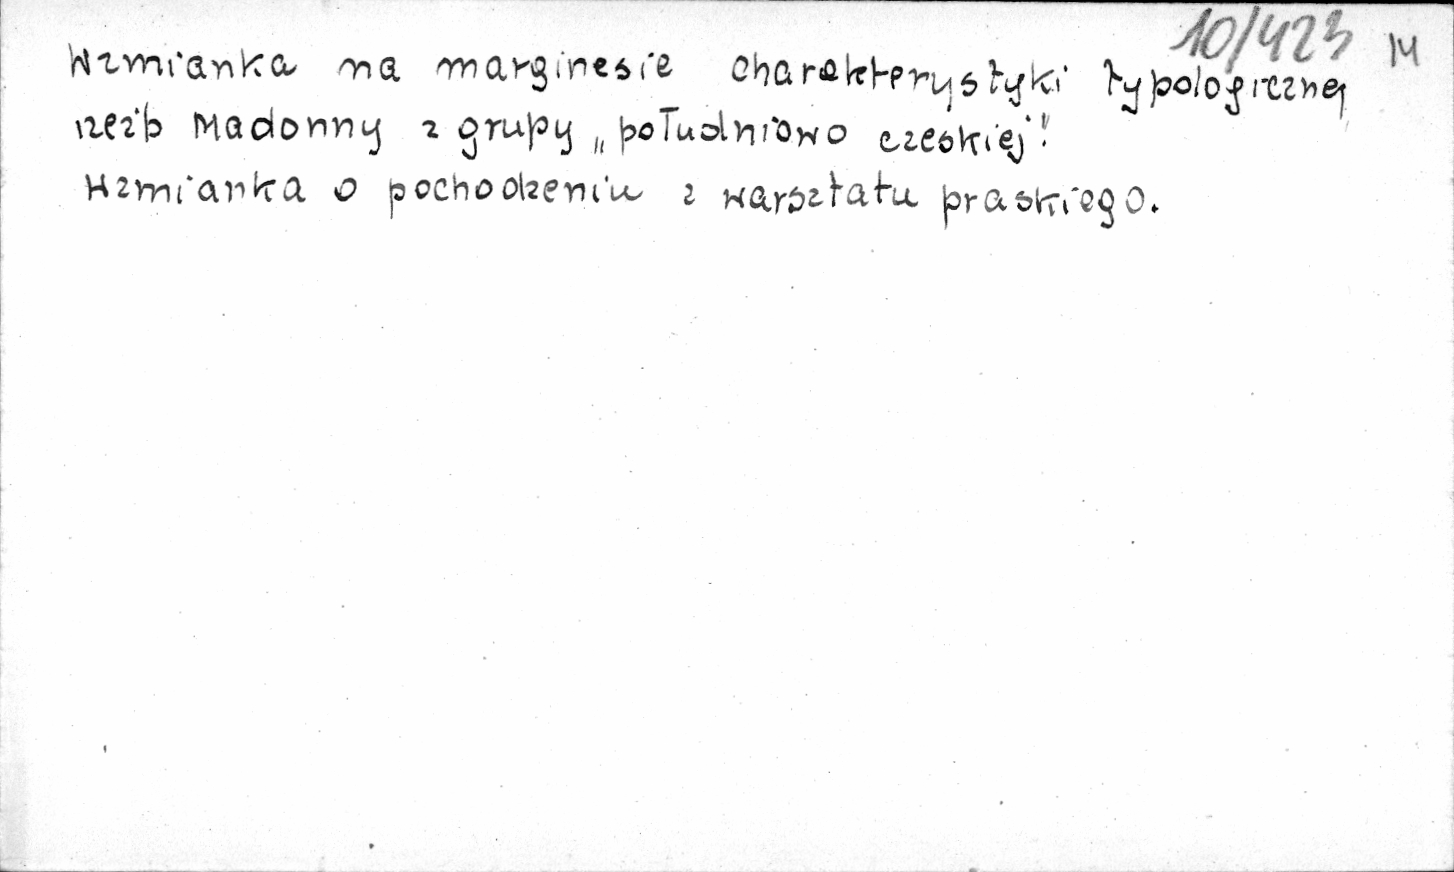 10/423 M
Wzmianka na marginesie charakterystyki typologicznej
rzeźb Madonny z grupy „południowo czeskiej".
Wzmianka o pochodzeniu z warsztatu praskiego.